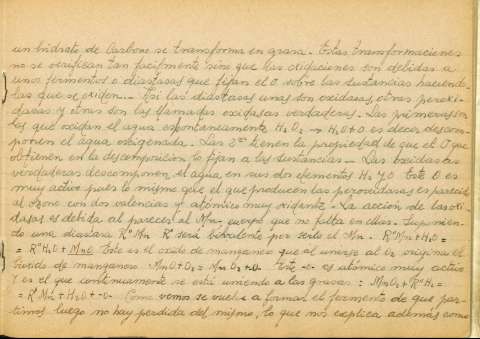 un hidrato de Carbono se transforma en grasa. Estas transformaciones
no se verifican tan facilmente sino que las oxidaciones son debidas a
unos fermentos o diastasas que fijan el O sobre las sustancias haciendo-
las que se oxiden.- Asi las diastasas unas son oxidasas, otras peroxi-
dasas y otras son las llamadas oxidasas verdaderas.- Las primeras son
las que oxidan el agua espontaneamente H2O2 → H2O+O es decir descom-
ponen el agua oxigenada. Las 2as tienen la propiedad de que el O que
obtienen en la descomposición lo fijan a las sustancias - Las oxidasas
verdaderas descomponen el agua en sus dos elementos H2 y O Este O es
muy activo pues lo mismo que el que producen las peroxidasas es parecido
al ozono con dos valencias y atómico muy oxidante.- La acción de las oxi-
dasas es debida al parecer al Mn, cuerpo que no falta en ellas. Suponien-
do una diastasa R"Mn R" será bivalente por serlo el Mn. R"Mn+H2O=
= R"H2O + MnO Este es el oxido de manganeso que al unirse al O2 origina el
bióxido de manganeso MnO+O2= MnO2+-O- Este -o- es atómico muy activo
y es el que continuamente se está uniendo a las grasas: MnO2+R"H2=
= R"Mn+H2O+-O- Como vemos se vuelve a formar el fermento de que par-
timos luego no hay perdida del mismo, lo que nos explica además como